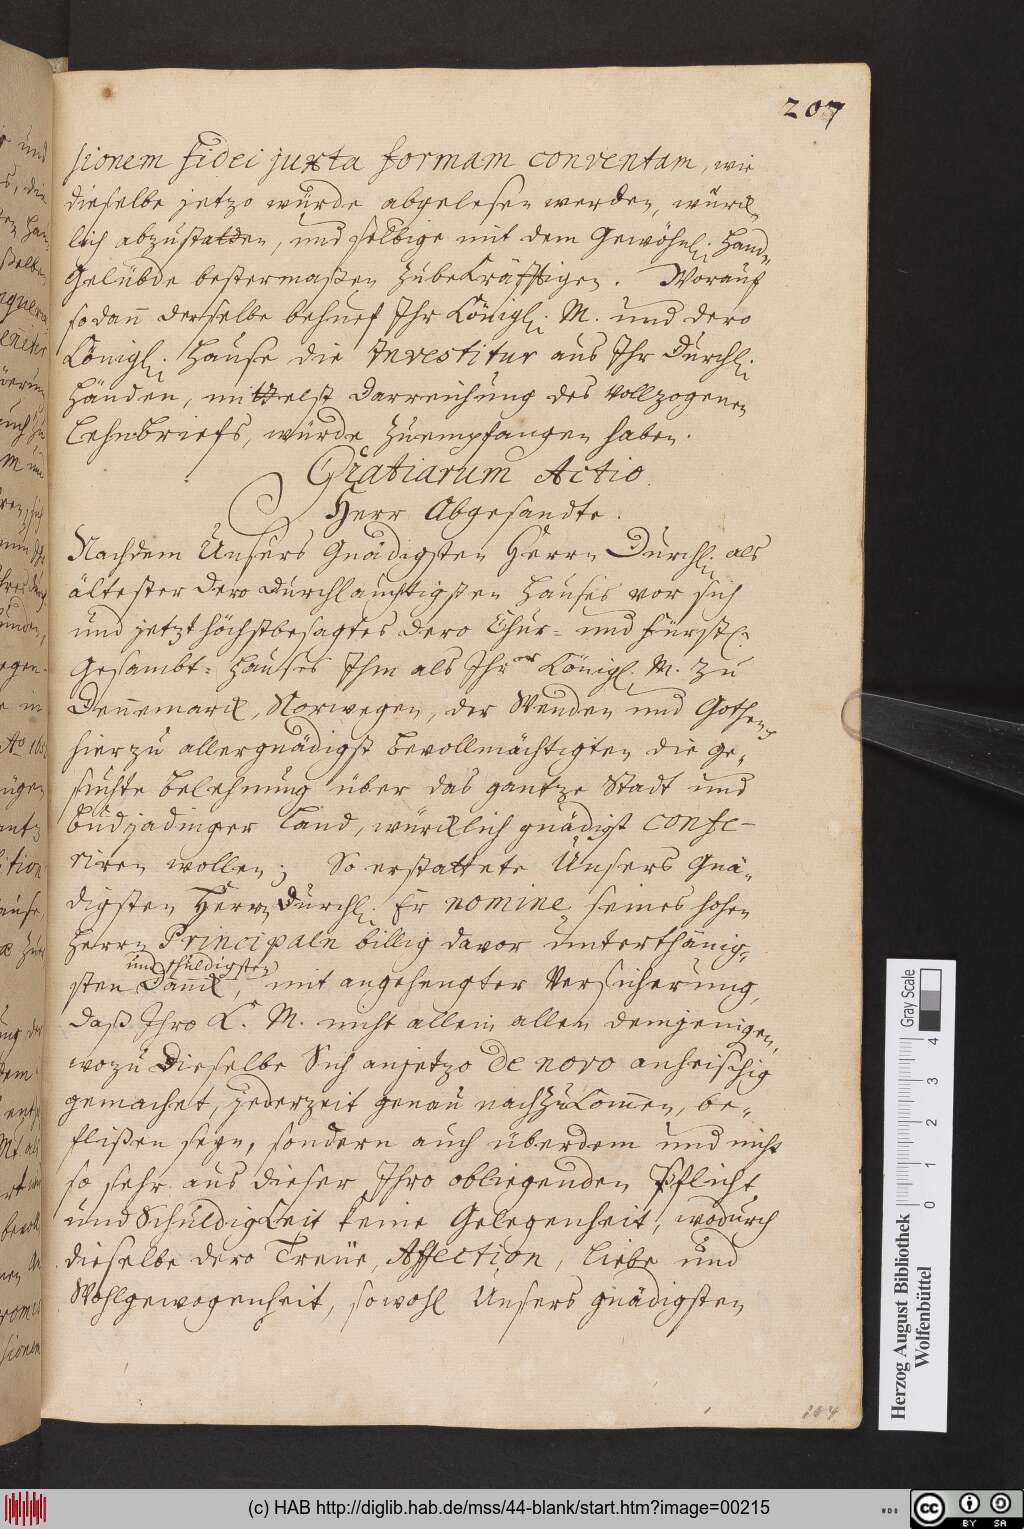 207
sionem fidei juxta formam conventam, wie
dieselbe jetzo würde abgelesen werden, würck-
lich abzustatten, und selbige mit dem Gewöhnl. Hand-
Gelübde bestermaßen zubekräfftigen. Worauf
sodann derselbe behuef Ihr Königl. M. und dero
Königl. Hause die Investitur aus Ihr Durchl.
Händen, mittelst Darreichung des vollzogenen
Lehnbriefs, würde zuempfangen haben.
Gratiarum Actio.
Herr Abgesandte.
Nachdem Unsers Gnädigsten Herrn Durchl. als
ältester dero Durchlauchtigsten Hauses vor sich
und jetzt höchstbesagtes dero Chur- und Fürstl.
Gesambt-Hauses Ihm als Ihrer Königl. M. zu
Dennemarck, Norwegen, der Wenden und Gothen,
hierzu allergnädigst bevollmächtigten die ge-
suchte Belehnung über das gantze Stadt und
Budjadinger Land, würcklich gnädigst confe-
riren wollen; So erstattete Unsers Gnä-
digsten Herrn Durchl. Er nomine seines hohen
Herrn Principaln billig davor unterthänig-
und schuldigsten
sten Danck, mit angehengter Versicherung,
daß Ihro K. M. nicht allein allen demjenigen,
wozu Dieselbe Sich anjetzo de novo anheischig
gemachet, jederzeit genau nachzukommen, be-
flißen seyn, sondern auch überdem und nicht
so sehr aus dieser Ihro obliegenden Pflicht
und Schuldigkeit keine Gelegenheit, wodurch
dieselbe dero Treüe, Affection, Liebe und
Wohlgewogenheit, sowohl Unsers gnädigsten
204
Herzog August Bibliothek
Wolfenbüttel
Gray Scale
0 1 2 3 4
(c) HAB http://diglib.hab.de/mss/44-blank/start.htm?image=00215
WDB
cc BY SA